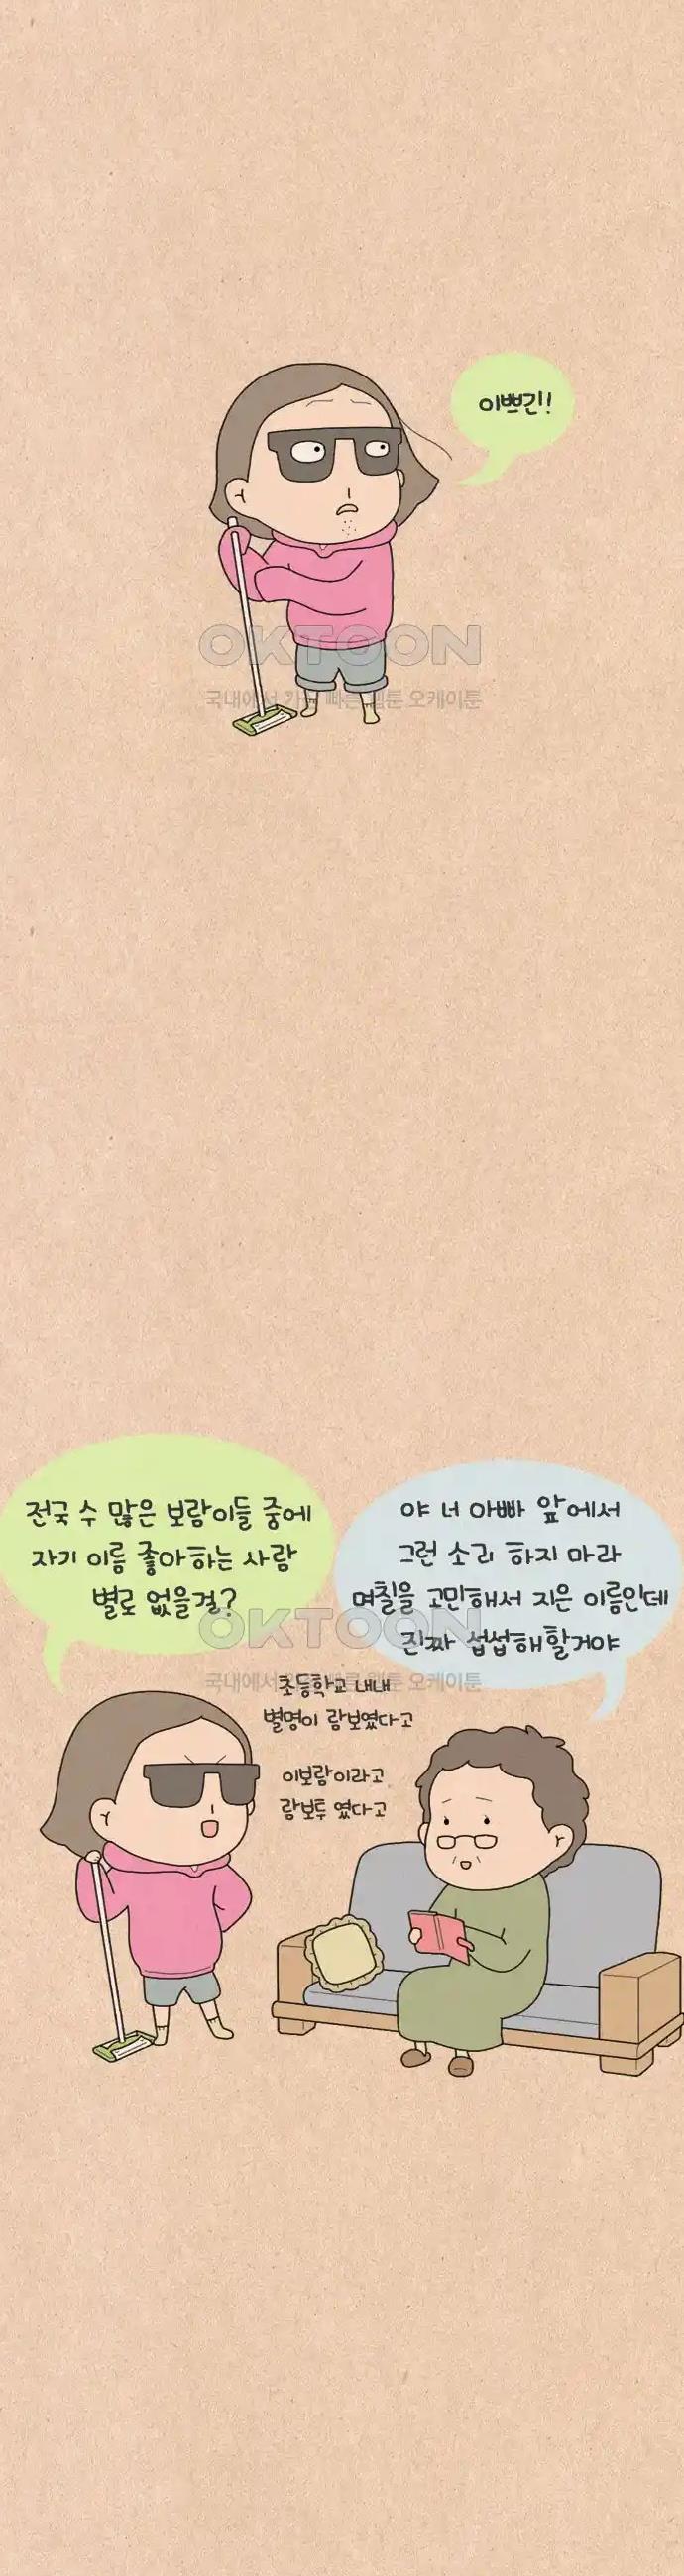 이쁘긴!
OKTOON
국내에서 가장 빠른 웹툰 오케이툰
전국 수 많은 보람이들 중에
자기 이름 좋아하는 사람
별로 없을걸?
야 너 아빠 앞에서
그런 소리 하지 마라
며칠을 고민해서 지은 이름인데
진짜 섭섭해할거야
OKTOON
국내에서 가장 빠른 웹툰 오케이툰
초등학교 내내
별명이 람보였다고
이보람이라고
람보투 였다고